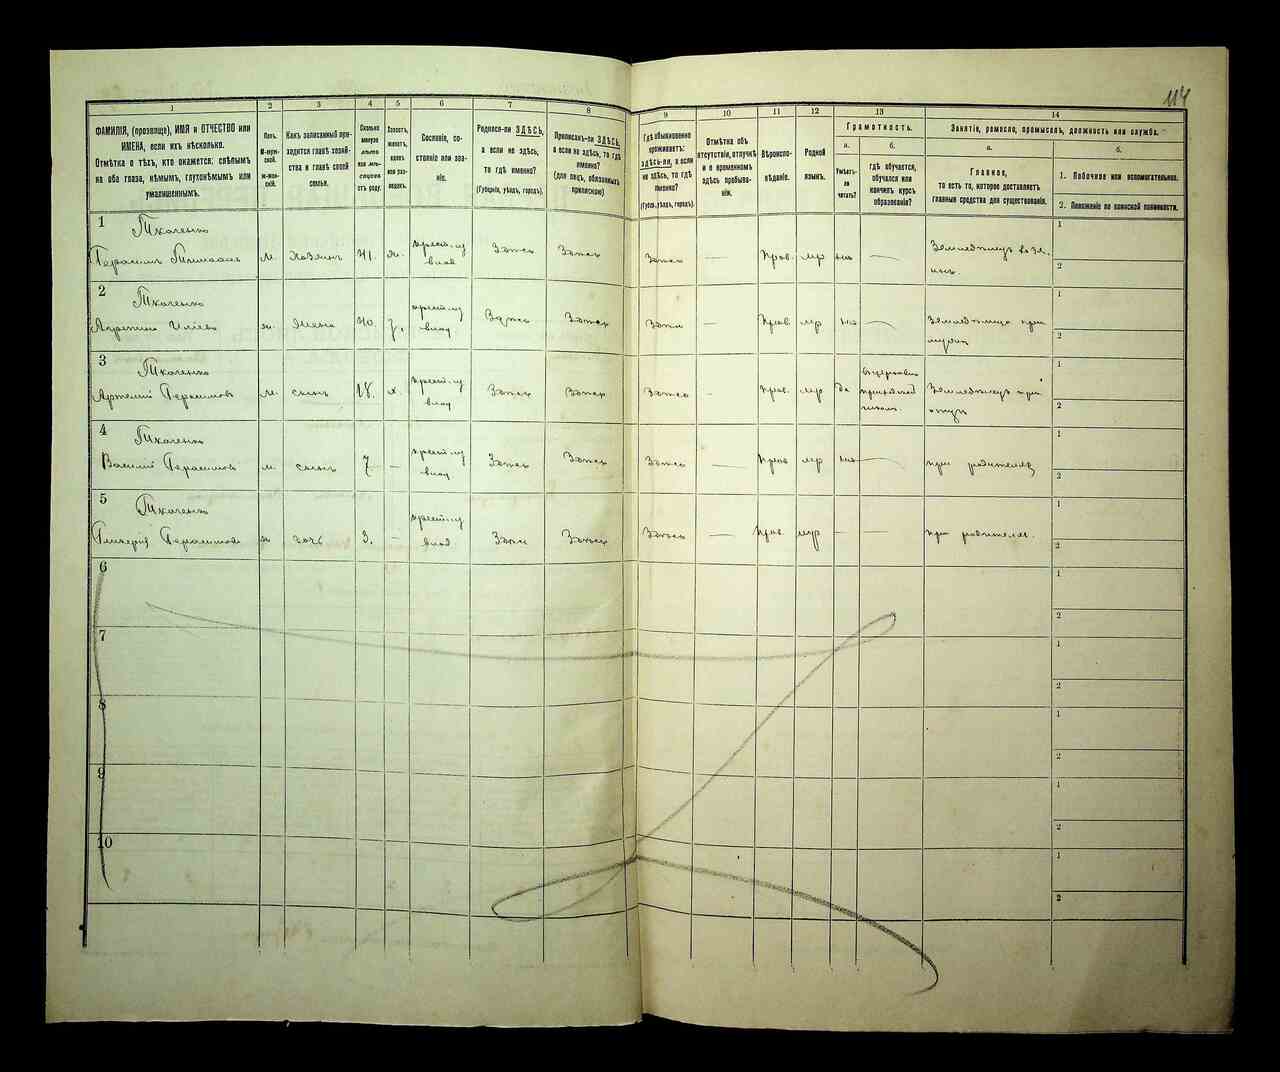 114
1
2
3
4
5
6
7
8
9
10
11
12
13
14
ФАМИЛІЯ, (прозвище), ИМЯ и ОТЧЕСТВО или
ИМЕНА, если ихъ нѣсколько.
Отмѣтка о тѣхъ, кто окажется: слѣпымъ
на оба глаза, нѣмымъ, глухонѣмымъ или
умалишеннымъ.
Полъ.
М-муж-
ской.
Ж-жен-
скій.
Какъ записанный при-
ходится главѣ хозяй-
ства и главѣ своей
семьи.
Сколько
минуло
лѣтъ
или мѣ-
сяцевъ
отъ роду.
Холостъ,
женатъ,
вдовъ
или раз-
веденъ.
Сословіе, со-
стояніе или зва-
ніе.
Родился-ли ЗДѢСЬ,
а если не здѣсь,
то гдѣ именно?
(Губернія, уѣздъ, городъ).
Приписанъ-ли ЗДѢСЬ,
а если не здѣсь, то гдѣ
именно?
(для лицъ, обязанныхъ
припискою)
Гдѣ обыкновенно
проживаетъ:
ЗДѢСЬ-ли, а если
не здѣсь, то гдѣ
именно?
(Губ., уѣздъ, городъ).
Отмѣтка объ
отсутствіи, отлучкѣ
и о временномъ
здѣсь пребыва-
ніи.
Вѣроиспо-
вѣданіе.
Родной
языкъ.
Грамотность.
а.
Умѣетъ-
ли
читать?
б.
гдѣ обучается,
обучался или
кончилъ курсъ
образованія?
Занятіе, ремесло, промыселъ, должность или служба.
а.
Главное,
то есть то, которое доставляетъ
главныя средства для существованія.
б.
1. Побочное или вспомогательное.
2. Положеніе по воинской повинности.
1
Ткаченко
Герасимъ м. хозяинъ 41. ж. крест. из влад Здѣсь Здѣсь Здѣсь — Прав. мр —
1
2
2
Ткаченко
ж. жена 40. крест. из влад Здѣсь Здѣсь Здѣсь — Прав. мр —
1
2
3
Ткаченко
Артемій Герасимовъ м. сынъ 18. х. крест. из влад Здѣсь Здѣсь Здѣсь — прав. мр да школѣ
1
2
4
Ткаченко
Василій Герасимовъ м. сынъ 7 — крест. из влад Здѣсь Здѣсь Здѣсь — Прав мр — при родителяхъ
1
2
5
Ткаченко
ж дочь 3. — крест. из влад Здѣсь Здѣсь Здѣсь — прав. мр — — при родителях.
1
2
6
1
2
7
1
2
8
1
2
9
1
2
10
1
2